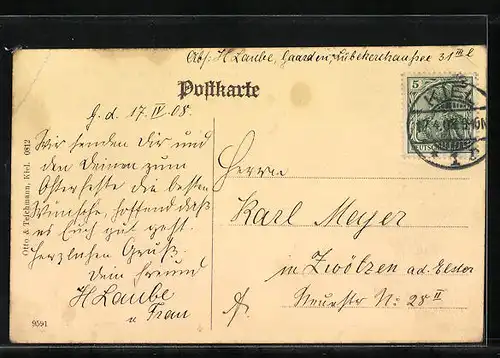 Abs: H Laube, Gaarden, Lübekerchaussee 31 III l
Postkarte
5
KIEL
G. d. 17. IV 08.
Wir senden Dir und
den Deinen zum
Osterfeste die besten
Wünsche, hoffend daß
es Euch gut geht.
Herzlichen Gruß.
Dein Freund
H Laube
u Frau
Herrn
Karl Mayer
in Zwötzen a.d. Elster
Neuestr No: 28 II
Otto & Teichmann, Kiel. 0812
9591